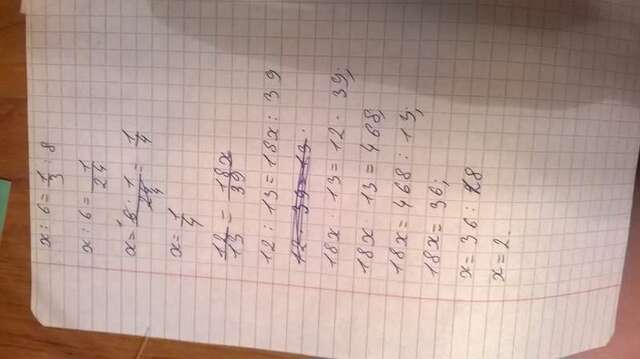 x : 6 = 1/3 : 8
x : 6 = 1/24
x = 6 · 1/24 = 1/4
x = 1/4
12/13 = 18x/39
12 : 13 = 18x : 39
12 · 39 = 13 ·
18x · 13 = 12 · 39;
18x · 13 = 468;
18x = 468 : 13;
18x = 36;
x = 36 : 18
x = 2.